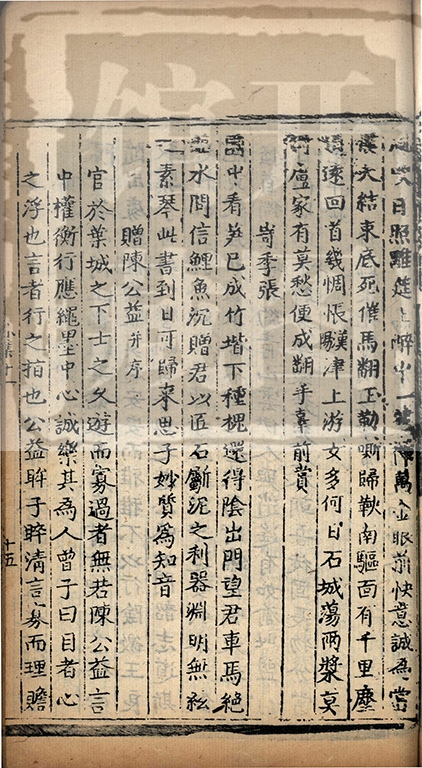 日照離筵上醉中一 萬金眼前快意誠為當
大結束底死催馬翩玉勒嘶歸鞅南驅面有千里塵
速回首幾惆悵漢津上游女多何日石城蕩兩槳莫
盧家有莫愁便成翻手辜前賞
寄季張
中看笋已成竹堦下種槐還得陰出門望君車馬絶
水問信鯉魚沉贈君以匠石斲泥之利器淵明無絃
素琴此書到日可歸來思子妙質為知音
贈陳公益并序
官於葉城之下士之久遊而寡過者無若陳公益言
中權衡行應繩墨中心誠樂其為人曾子曰目者心
之浮也言者行之指也公益眸子睟清言寡而理贍
十五